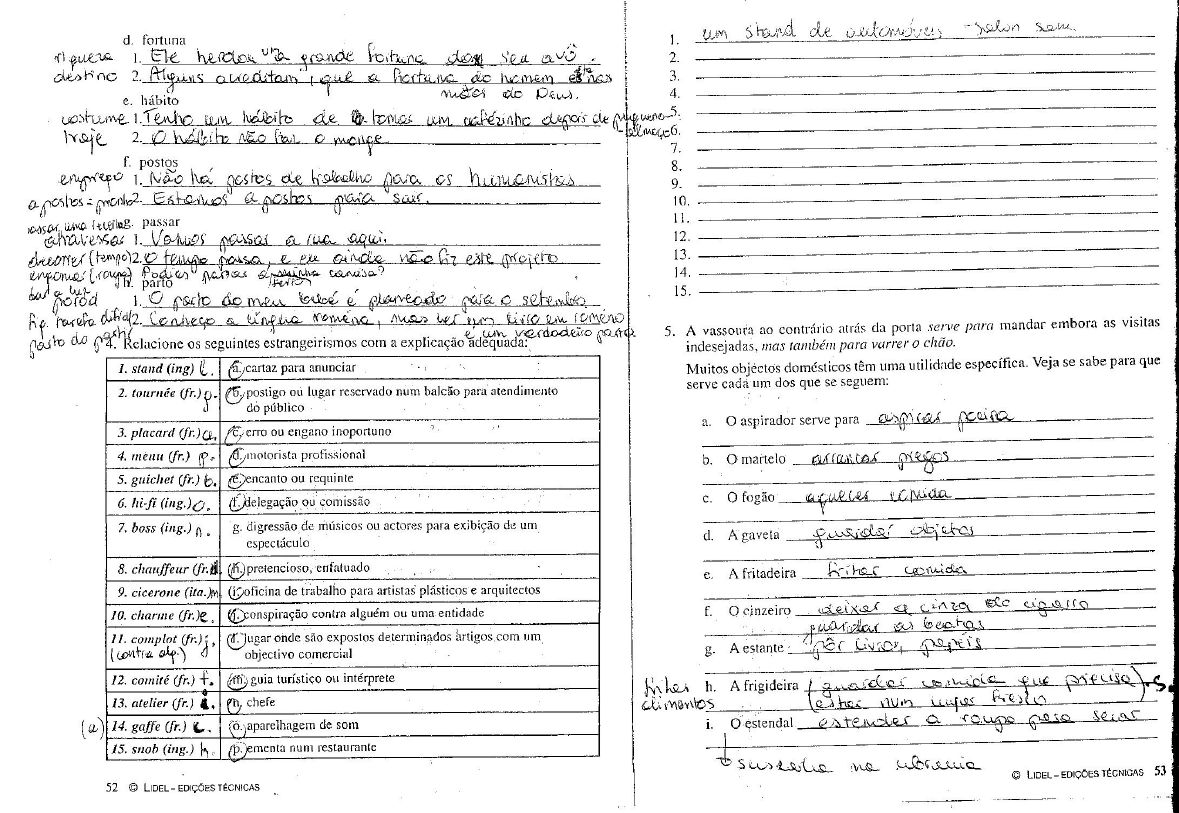 d. fortuna
riqueza 1. Ele herdou uma grande fortuna do seu avô.
destino 2. Alguns acreditam, que a fortuna do homem está nas
mãos do Deus.
e. hábito
costume 1. Tenho um hábito de tomar um cafézinho depois de pequeno-
-almoço
traje 2. O hábito não faz o monge
f. postos
emprego 1. Não há postos de trabalho para os humanistas
a postos = pronto 2. Estamos a postos para sair.
g. passar
atravessar 1. Vamos passar a rua aqui.
decorrer (tempo) 2. O tempo passa, e eu ainda não fiz este projeto
engomar (roupa) Podes passar a minha camisa?
a ferro
h. parto
dar à luz
poród 1. O parto do meu bebé é planeado para o setembro
fig. tarefa difícil 2. Conheço a língua romena, mas ler um livro em romeno
é um verdadeiro parto
4. Relacione os seguintes estrangeirismos com a explicação adequada:
1. stand (ing) l. a. cartaz para anunciar
2. tournée (fr.) g. b. postigo ou lugar reservado num balcão para atendimento
do público
3. placard (fr.) a. c. erro ou engano inoportuno
4. menu (fr.) p. d. motorista profissional
5. guichet (fr.) b. e. encanto ou requinte
6. hi-fi (ing.) o. f. delegação ou comissão
7. boss (ing.) n. g. digressão de músicos ou actores para exibição de um
espectáculo
8. chauffeur (fr.) h. pretencioso, enfatuado
9. cicerone (ita.) m i. oficina de trabalho para artistas plásticos e arquitectos
10. charme (fr.) e. j. conspiração contra alguém ou uma entidade
11. complot (fr.) j. l. lugar onde são expostos determinados artigos com um
(contra alg.) objectivo comercial
12. comité (fr.) f. m. guia turístico ou intérprete
13. atelier (fr.) i. n. chefe
(a) 14. gaffe (fr.) c. o. aparelhagem de som
15. snob (ing.) h. p. ementa num restaurante
52 © LIDEL – EDIÇÕES TÉCNICAS
1. um stand de automóveis - salon sam.
2.
3.
4.
5.
6.
7.
8.
9.
10.
11.
12.
13.
14.
15.
5. A vassoura ao contrário atrás da porta serve para mandar embora as visitas
indesejadas, mas também para varrer o chão.
Muitos objectos domésticos têm uma utilidade específica. Veja se sabe para que
serve cada um dos que se seguem:
a. O aspirador serve para aspirar poeira
b. O martelo arrancar pregos
c. O fogão aquecer comida
d. A gaveta guardar objetos
e. A fritadeira fritar comida
f. O cinzeiro deixar a cinza do cigarro
guardar as beatas
g. A estante pôr livros, papéis
fritar
alimentos h. A frigideira (guardar comida que precisa
estar num lugar fresco)
i. O estendal estender a roupa para secar
© LIDEL – EDIÇÕES TÉCNICAS 53